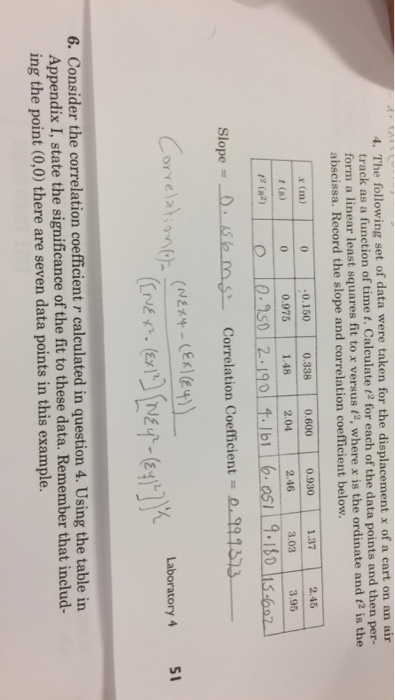 4. The following set of data were taken for the displacement x of a cart on an air
track as a function of time t. Calculate t² for each of the data points and then per-
form a linear least squares fit to x versus t², where x is the ordinate and t² is the
abscissa. Record the slope and correlation coefficient below.
x (m) 0 0.150 0.338 0.600 0.930 1.37 2.45
t (s) 0 0.975 1.48 2.04 2.46 3.03 3.95
t² (s²) 0 0.950 2.190 4.161 6.051 9.180 15.602
Slope = 0.156 ms² Correlation Coefficient = 0.999373
Correlation(r)= (NΣxy - (Σx)(Σy))
([NΣx². (Σx)²] [NΣy²-(Σy)²])½
Laboratory 4 51
6. Consider the correlation coefficient r calculated in question 4. Using the table in
Appendix I, state the significance of the fit to these data. Remember that includ-
ing the point (0,0) there are seven data points in this example.